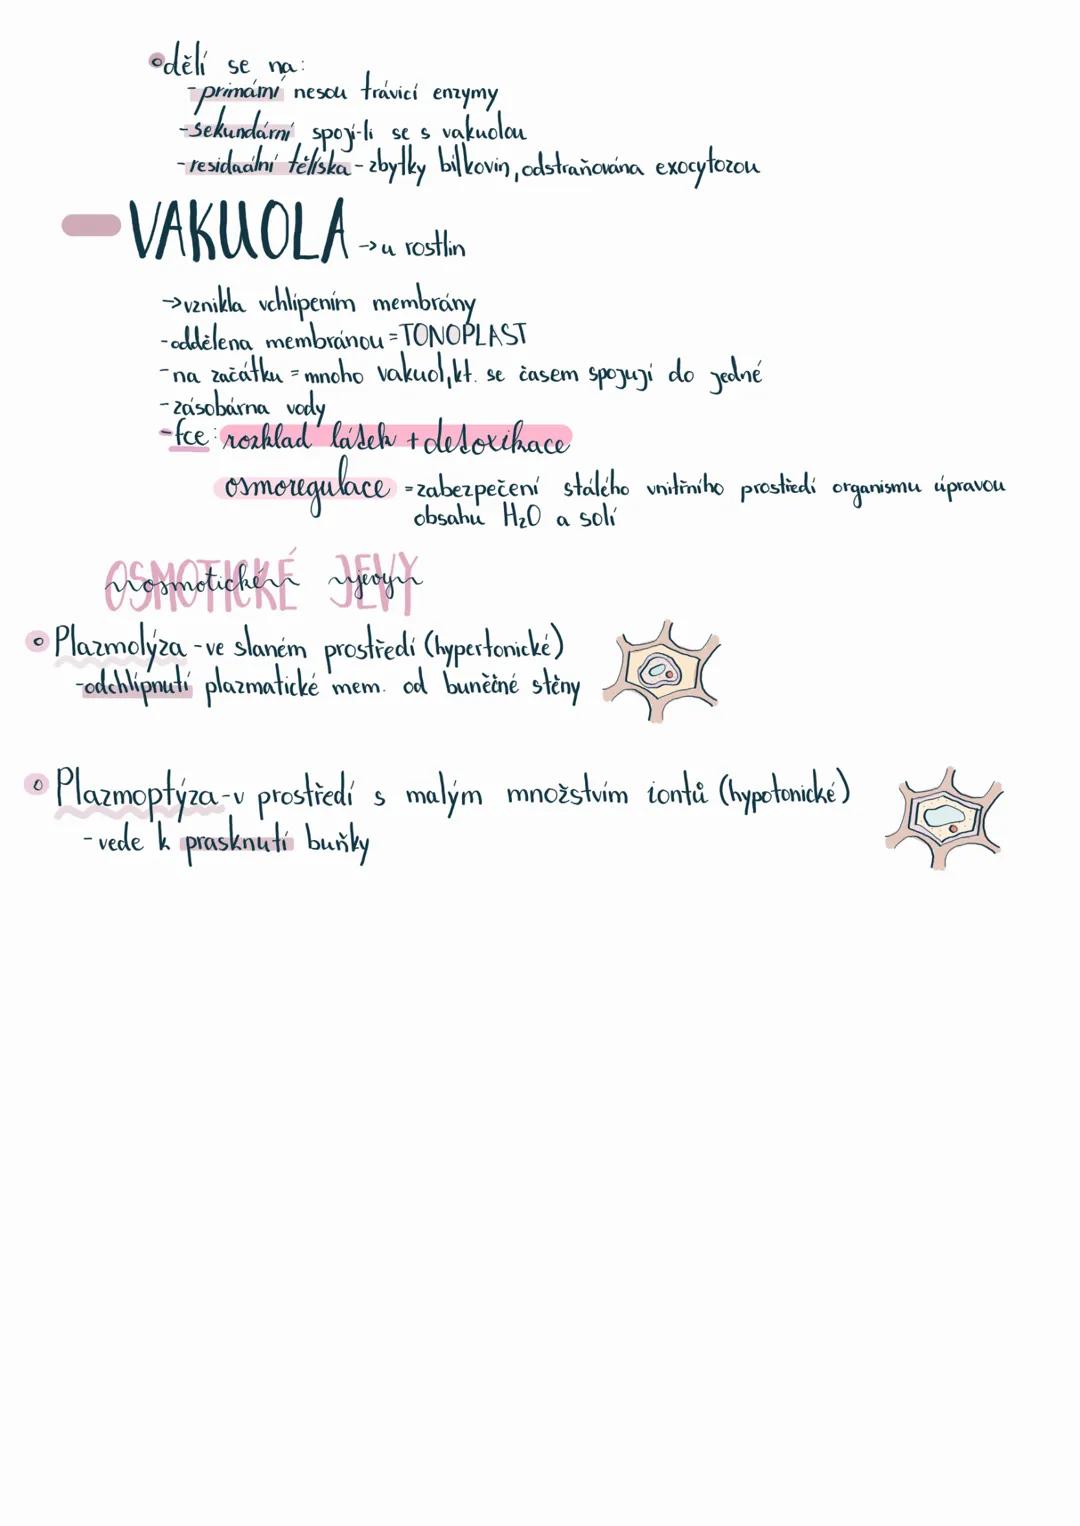 dělí se na:
- primární nesou trávicí enzymy
- sekundární spojí-li se s vakuolou
- residuální tělíska - zbytky bílkovin, odstraňována exocytozou
VAKUOLA → u rostlin
→ vznikla vchlípením membrány
- oddělena membránou = TONOPLAST
- na začátku = mnoho vakuol, kt. se časem spojují do jedné
- zásobárna vody
- fce: rozklad látek + detoxikace
osmoregulace = zabezpečení stálého vnitřního prostředí organismu úpravou
obsahu H₂O a solí
OSMOTICKÉ JEVY
osmotické jevy
Plazmolýza - ve slaném prostředí (hypertonické)
- odchlípnutí plazmatické mem. od buněčné stěny
Plazmoptýza - v prostředí s malým množstvím iontů (hypotonické)
- vede k prasknutí buňky